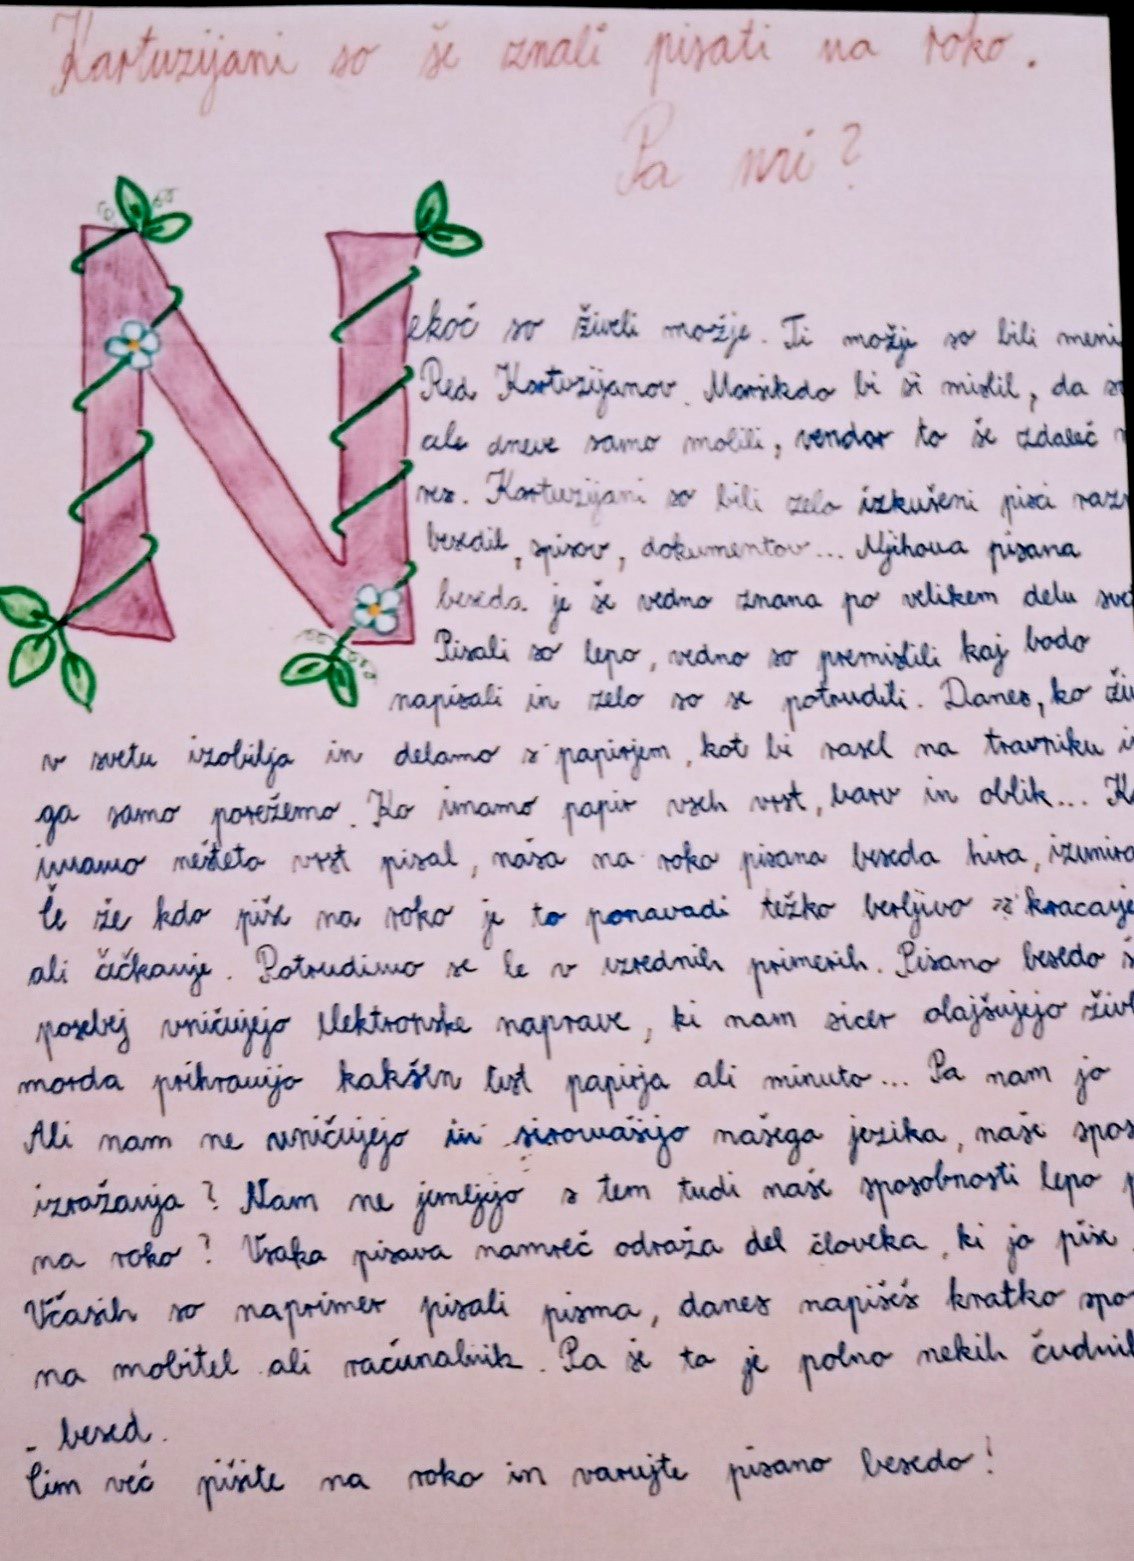 Kartuzijani so še znali pisati na roko.
Pa mi?
Nekoč so živeli možje. Ti možje so bili meni
Red Kartuzijanov. Marsikdo bi si mislil, da so
cele dneve samo molili, vendar to še zdaleč n
res. Kartuzijani so bili zelo izkušeni pisci razn
besedil, spisov, dokumentov... Njihova pisana
beseda je še vedno znana po velikem delu svet
Pisali so lepo, vedno so premislili kaj bodo
napisali in zelo so se potrudili. Danes, ko živ
v svetu izobilja in delamo s papirjem, kot bi rasel na travniku in
ga samo porežemo. Ko imamo papir vseh vrst, barv in oblik... K
imamo nešteto vrst pisal, naša na roko pisana beseda hira, izumira
Če že kdo piše na roko je to ponavadi težko berljivo kracanje
ali čečkanje. Potrudimo se le v izrednih primerih. Pisano besedo š
posebej uničujejo elektronske naprave, ki nam sicer olajšujejo živl
morda prihranijo kakšen list papirja ali minuto... Pa nam jo
Ali nam ne uničujejo in siromašijo našega jezika, naše spos
izražanja? Nam ne jemljejo s tem tudi naše sposobnosti lepo p
na roko? Vsaka pisava namreč odraža del človeka, ki jo piše.
Včasih so naprimer pisali pisma, danes napišeš kratko spo
na mobitel ali računalnik. Pa še ta je polno nekih čudnih
besed.
Čim več pišite na roko in varujte pisano besedo!